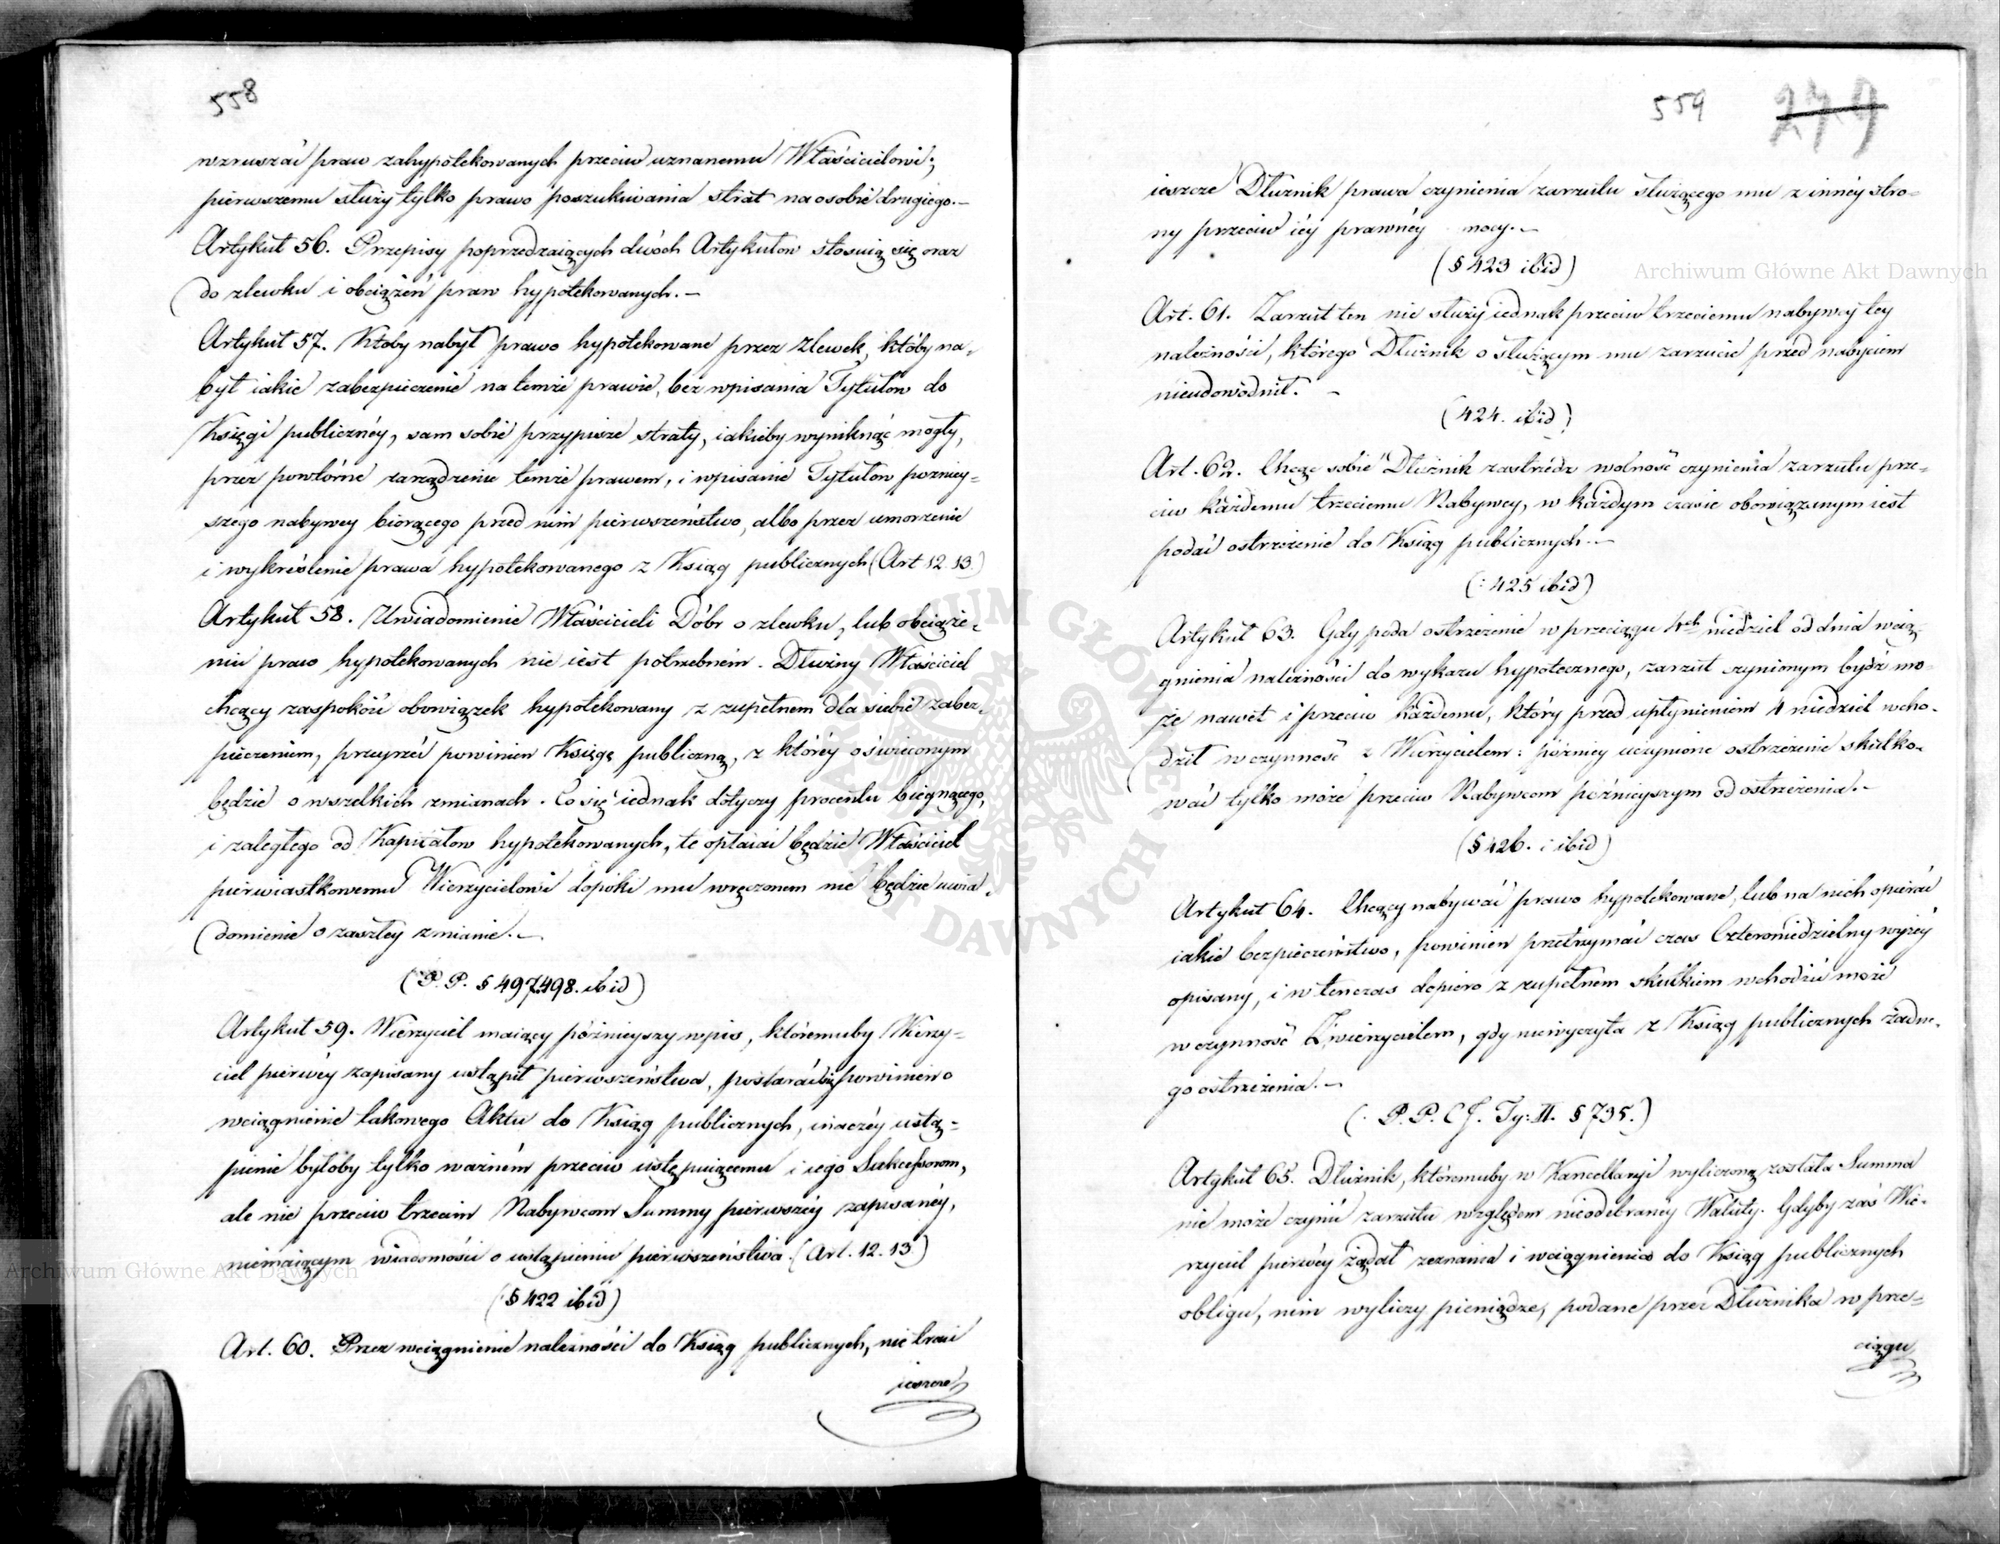 558
wzruszać praw zahypotekowanych przeciw uznanemu Właścicielowi;
pierwszemu służy tylko prawo poszukiwania strat na osobie drugiego.—
Artykuł 56. Przepisy poprzedzaiących dwóch Artykułów stosuią się oraz
do zlewku i obciążeń praw hypotekowanych.—
Artykuł 57. Ktoby nabył prawo hypotekowane przez zlewek, któby na-
był iakie zabezpieczenie na temże prawie, bez wpisania Tytułów do
Księgi publicznéy, sam sobie przypisze straty, iakieby wyniknąć mogły,
przez powtórne zarządzenie temże prawem, i wpisanie Tytułów poźniey-
szego nabywcy biorącego przed nim pierwszeństwo, albo przez umorzenie
i wykreślenie prawa hypotekowanego z Ksiąg publicznych (Art 12.13.)
Artykuł 58. Uwiadomienie Właścicieli Dóbr o zlewku, lub obciąże-
niu praw hypotekowanych nie iest potrzebném. Dłużny Właściciel
chcący zaspokoić obowiązek hypotekowany z zupełnem dla siebie zabez-
pieczeniem, przeyrzéć powinien Księgę publiczną, z któréy oświeconym
będzie o wszelkich zmianach. Co się iednak dotyczy procentu biegnącego,
i zaległego od Kapitałow hypotekowanych, te opłaiać będzie Właściciel
pierwiastkowemu Wierzycielowi dopóki mu wręczonem nie będzie uwia-
domienie o zaszłey zmianie.—
(P. P. § 497.498. ibid)
Artykuł 59. Wierzyciel maiący późnieyszy wpis, któremuby Wierzy-
ciel pierwéy zapisany ustąpił pierwszeństwa, postarać się powinien o
wciągnienie takowego Aktu do Ksiąg publicznych, inaczéy ustą-
pienie byłoby tylko ważném przeciw ustępuiącemu i iego Sukcessorom,
ale nie przeciw trzecim Nabywcom Summy pierwszéy zapisanéy,
niemaiącym wiadomości o ustąpieniu pierwszeństwa. (Art. 12.13.)
(§ 422 ibid)
Art. 60. Przez wciągnienie należności do Ksiąg publicznych, nie traci
ieszcze
559 279
ieszcze Dłużnik prawa czynienia zarzutu służącego mu z innéy stro-
ny przeciw iéy prawnéy mocy.—
(§ 423 ibid)
Art. 61. Zarzut ten nie służy iednak przeciw trzeciemu nabywcy tey
należności, którego Dłużnik o służącym mu zarzucie przed nabyciem
nieudowodnił.—
(424. ibid)
Art. 62. Chcąc sobie Dłużnik zastrzédz wolność czynienia zarzutu prze-
ciw każdemu trzeciemu Nabywcy, w każdym czasie obowiązanym iest
podać ostrzeżenie do Ksiąg publicznych.—
(: 425 ibid)
Artykuł 63. Gdy poda ostrzeżenie w przeciągu 4ch niedziel od dnia wcią-
gnienia należności do wykazu hypotecznego, zarzut czynionym bydź mo-
że nawet i przeciw każdemu, który przed upłynieniem 4 niedziel wcho-
dził w czynność z Wierzycielem: późniey uczynione ostrzeżenie skutko-
wać tylko może przeciw Nabywcom późnieyszym od ostrzeżenia.—
(§ 426. ibid)
Artykuł 64. Chcący nabywać prawo hypotekowane, lub na nich opierać
iakie bezpieczeństwo, powinien przetrzymać czas Czteroniedzielny wyżéy
opisany, i w tenczas dopiero z zupełnem skutkiem wchodzić może
w czynność z wierzycielem, gdy niewyczyta z Ksiąg publicznych żadne-
go ostrzeżenia.—
(. P. P. C. J. Ty: II. § 735.)
Artykuł 65. Dłużnik, któremuby w Kancellaryi wyliczoną została Summa
nie może czynić zarzutu względem nieodebranéy Waluty. Gdyby zaś Wie-
rzyciel pierwéy żądał zeznania i wciągnienia do Ksiąg publicznych
obligu, nim wyliczy pieniądze, podane przez Dłużnika w prze-
ciągu
Archiwum Główne Akt Dawnych
Archiwum Główne Akt Dawnych
ARCHIWUM GŁÓWNE AKT DAWNYCH